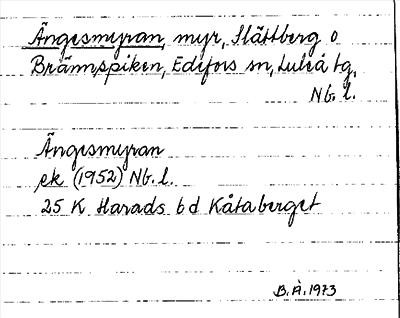 Ängesmyran, myr, Slättberg o
Brännspiken, Edefors sn, Luleå tg,
Nb. l.
Ängesmyran
ek (1952) Nb. l.
25 K Harads 6 d Kåtaberget
B. Å. 1973